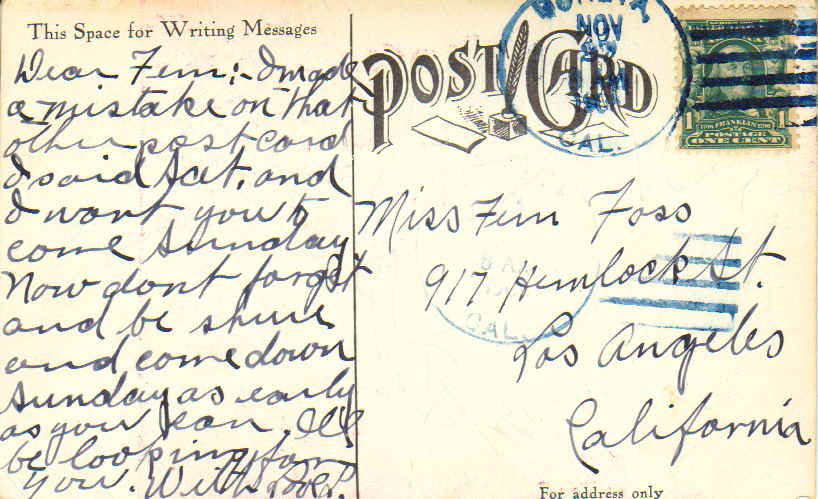 This Space for Writing Messages
Dear Fern:- I made
a mistake on that
other post card
I said Sat. and
I want you to
come Sunday
Now dont forget
and be shure
and come down
Sunday as early
as you can. I'll
be looking for
you. With love.
POST CARD
NOV
CAL.
1790 FRANKLIN 1790
POSTAGE
1 ONE CENT 1
Miss Fern Foss
917 Hemlock St.
Los Angeles
California
8 AM
CAL.
For address only